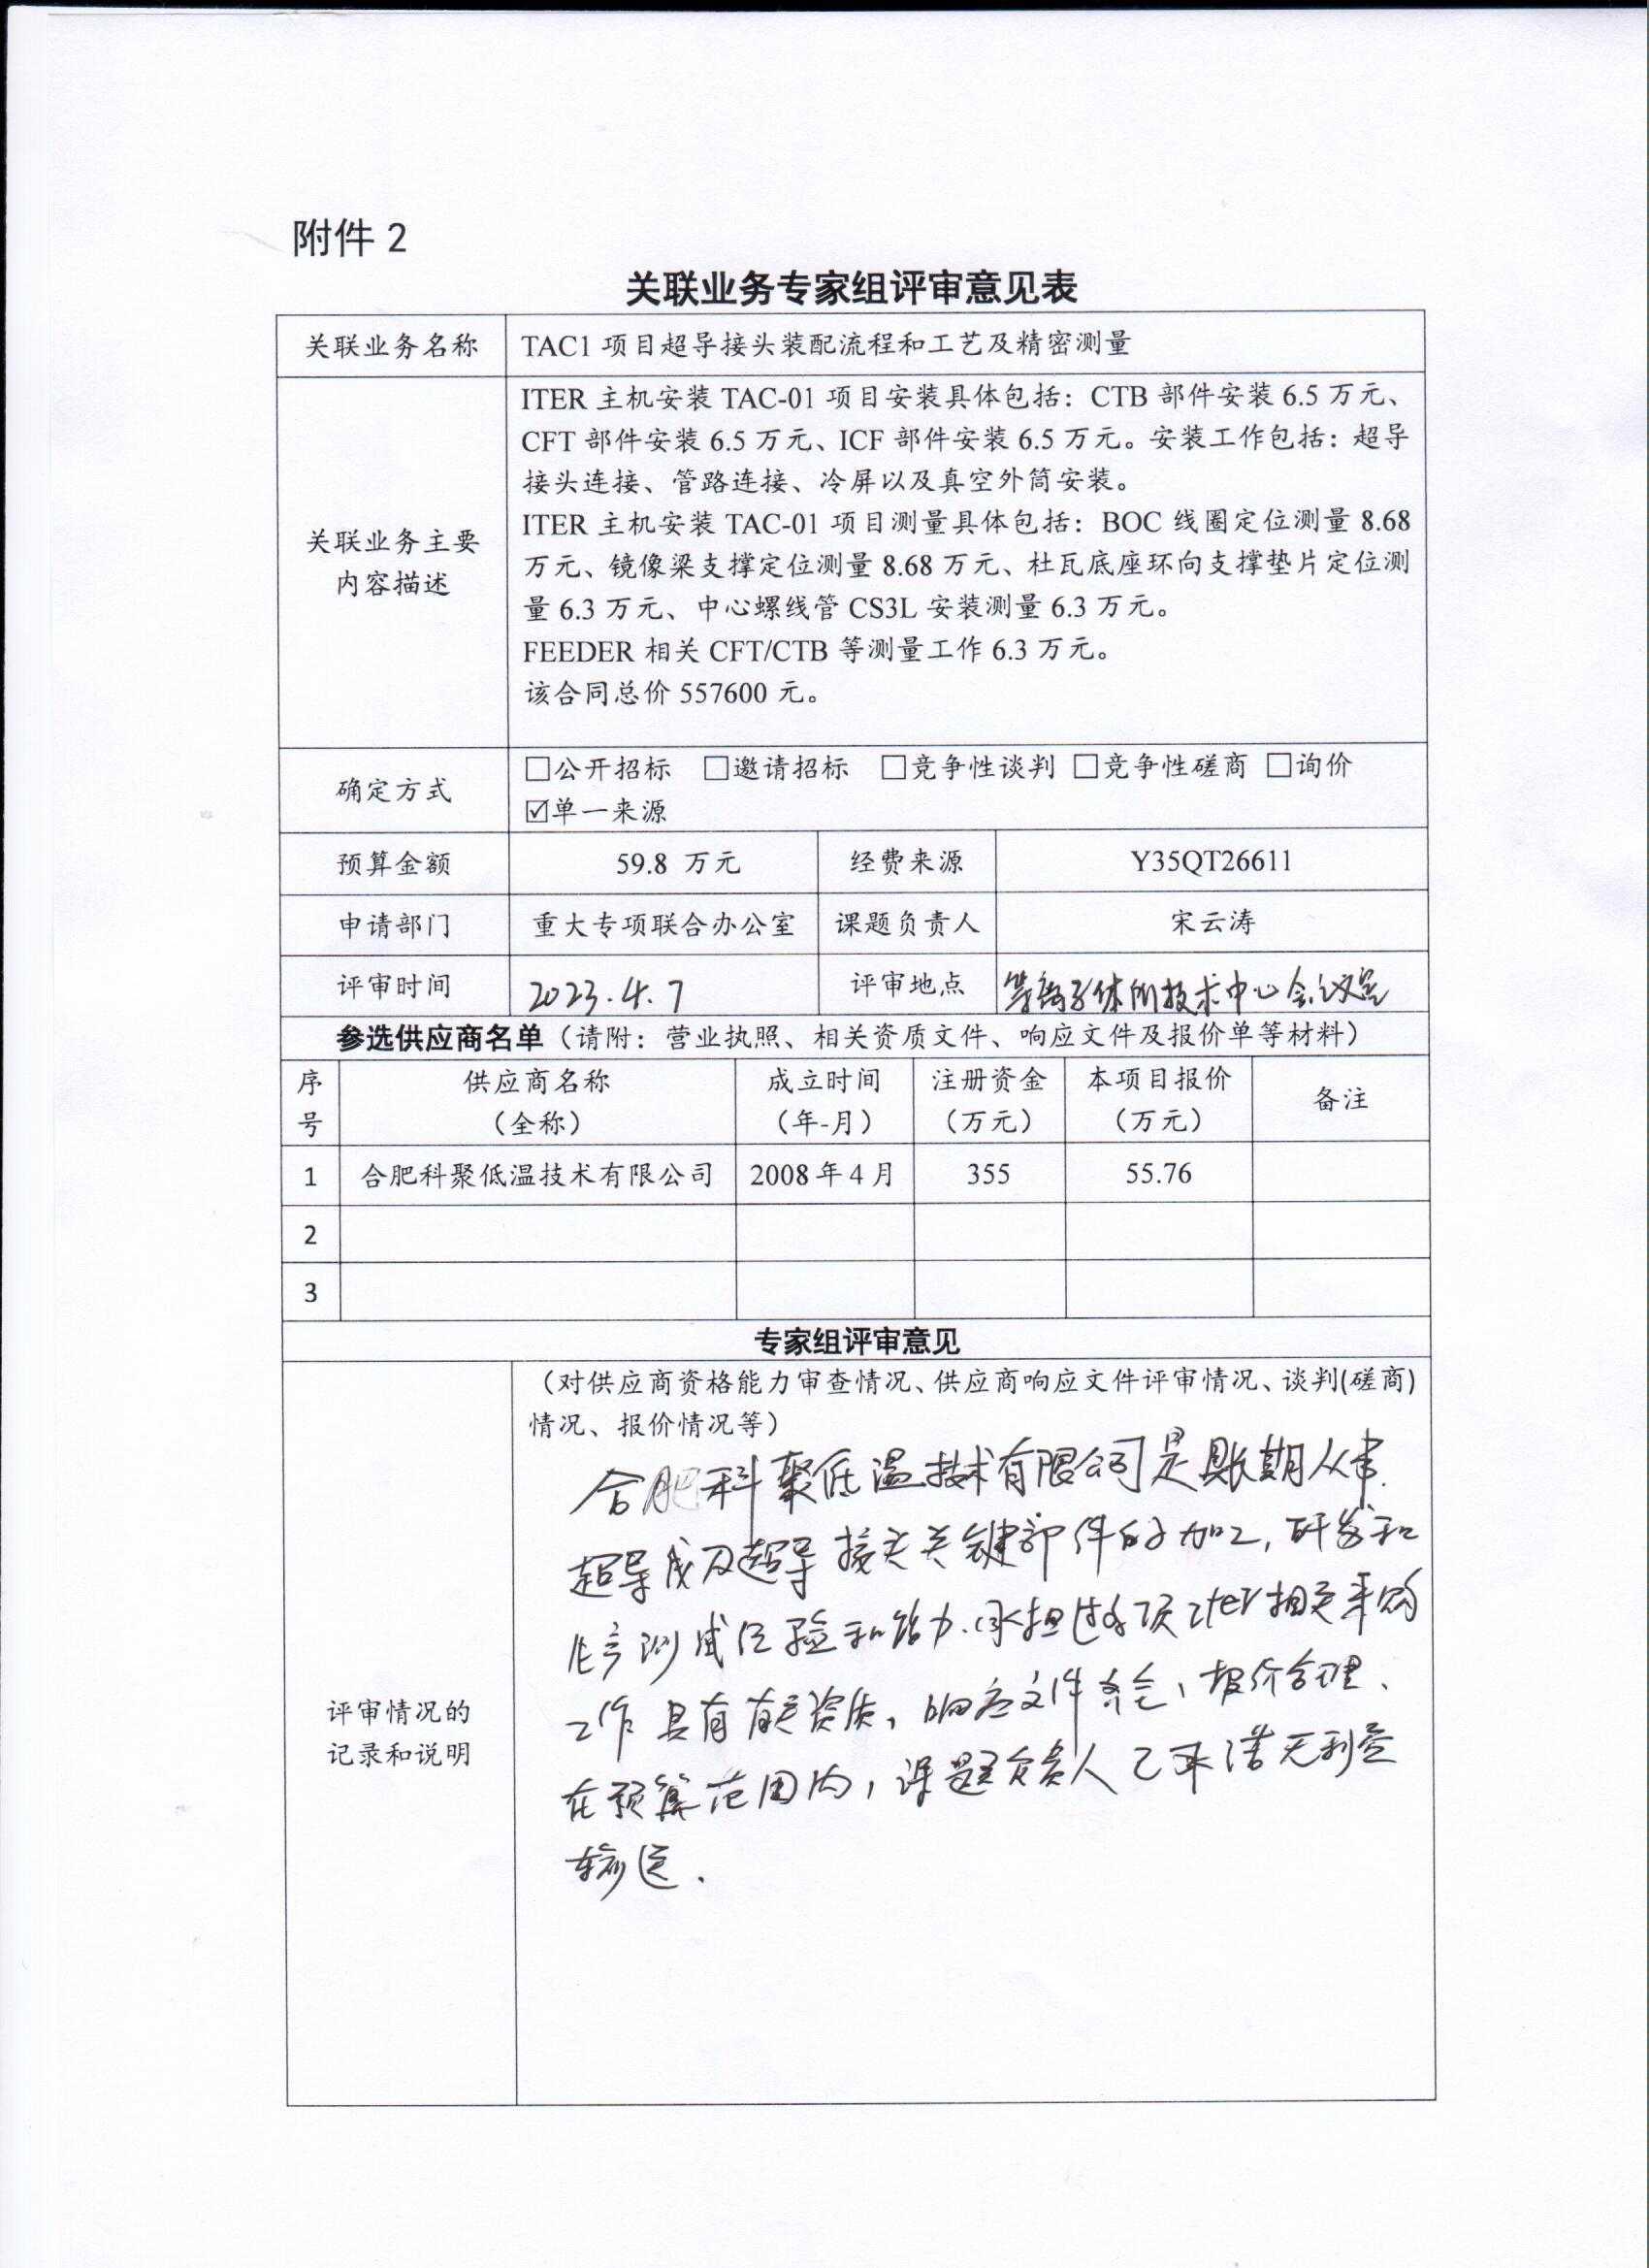 附件 2
关联业务专家组评审意见表
关联业务名称
TAC1 项目超导接头装配流程和工艺及精密测量
关联业务主要
内容描述
ITER 主机安装 TAC-01 项目安装具体包括：CTB 部件安装 6.5 万元、
CFT 部件安装 6.5 万元、ICF 部件安装 6.5 万元。安装工作包括：超导
接头连接、管路连接、冷屏以及真空外筒安装。
ITER 主机安装 TAC-01 项目测量具体包括：BOC 线圈定位测量 8.68
万元、镜像梁支撑定位测量 8.68 万元、杜瓦底座环向支撑垫片定位测
量 6.3 万元、中心螺线管 CS3L 安装测量 6.3 万元。
FEEDER 相关 CFT/CTB 等测量工作 6.3 万元。
该合同总价 557600 元。
确定方式
□公开招标 □邀请招标 □竞争性谈判 □竞争性磋商 □询价
☑单一来源
预算金额 59.8 万元 经费来源 Y35QT26611
申请部门 重大专项联合办公室 课题负责人 宋云涛
评审时间 2023.4.7 评审地点 等离子体所技术中心会议室
参选供应商名单（请附：营业执照、相关资质文件、响应文件及报价单等材料）
序号 供应商名称（全称） 成立时间（年-月） 注册资金（万元） 本项目报价（万元） 备注
1 合肥科聚低温技术有限公司 2008 年 4 月 355 55.76
2
3
专家组评审意见
评审情况的
记录和说明
（对供应商资格能力审查情况、供应商响应文件评审情况、谈判(磋商)
情况、报价情况等）
合肥科聚低温技术有限公司是长期从事
超导及超导接头关键部件的加工, 研发和
测试经验和能力. 承担过多项iter相关采购
工作 具有有关资质, 响应文件齐全, 报价合理、
在预算范围内, 课题负责人已承诺无利益
输送.